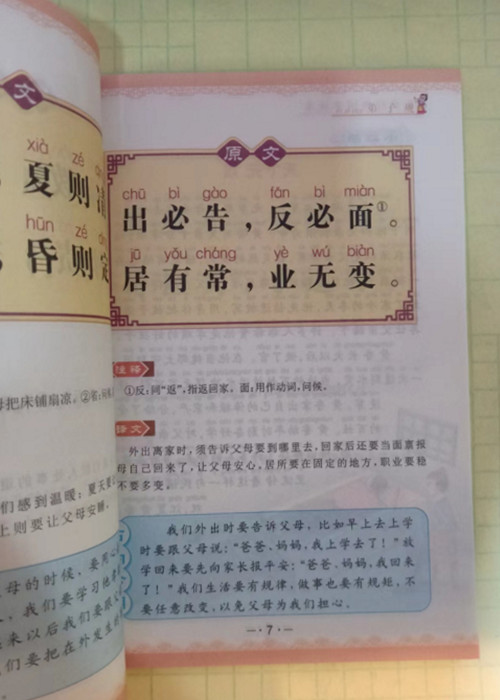 文
xià zé
夏则
hūn zé
昏则定
母把床铺扇凉。②省:
们感到温暖；夏天
上则要让父母安睡。
母的时候，要用心
，我们要学习他
来以后我们要跟父
们要把在外发生的
原文
chū bì gào fǎn bì miàn
出必告，反必面①。
jū yǒu cháng yè wú biàn
居有常，业无变。
注释
①反：同“返”，指返回家。面：用作动词，问候。
译文
外出离家时，须告诉父母要到哪里去，回家后还要当面禀报
母自己回来了，让父母安心，居所要在固定的地方，职业要稳
不要多变。
我们外出时要告诉父母，比如早上去上学
时要跟父母说：“爸爸、妈妈，我上学去了！”放
学回来要先向家长报平安：“爸爸、妈妈，我回来
了！”我们生活要有规律，做事也要有规矩，不
要任意改变，以免父母为我们担心。
7